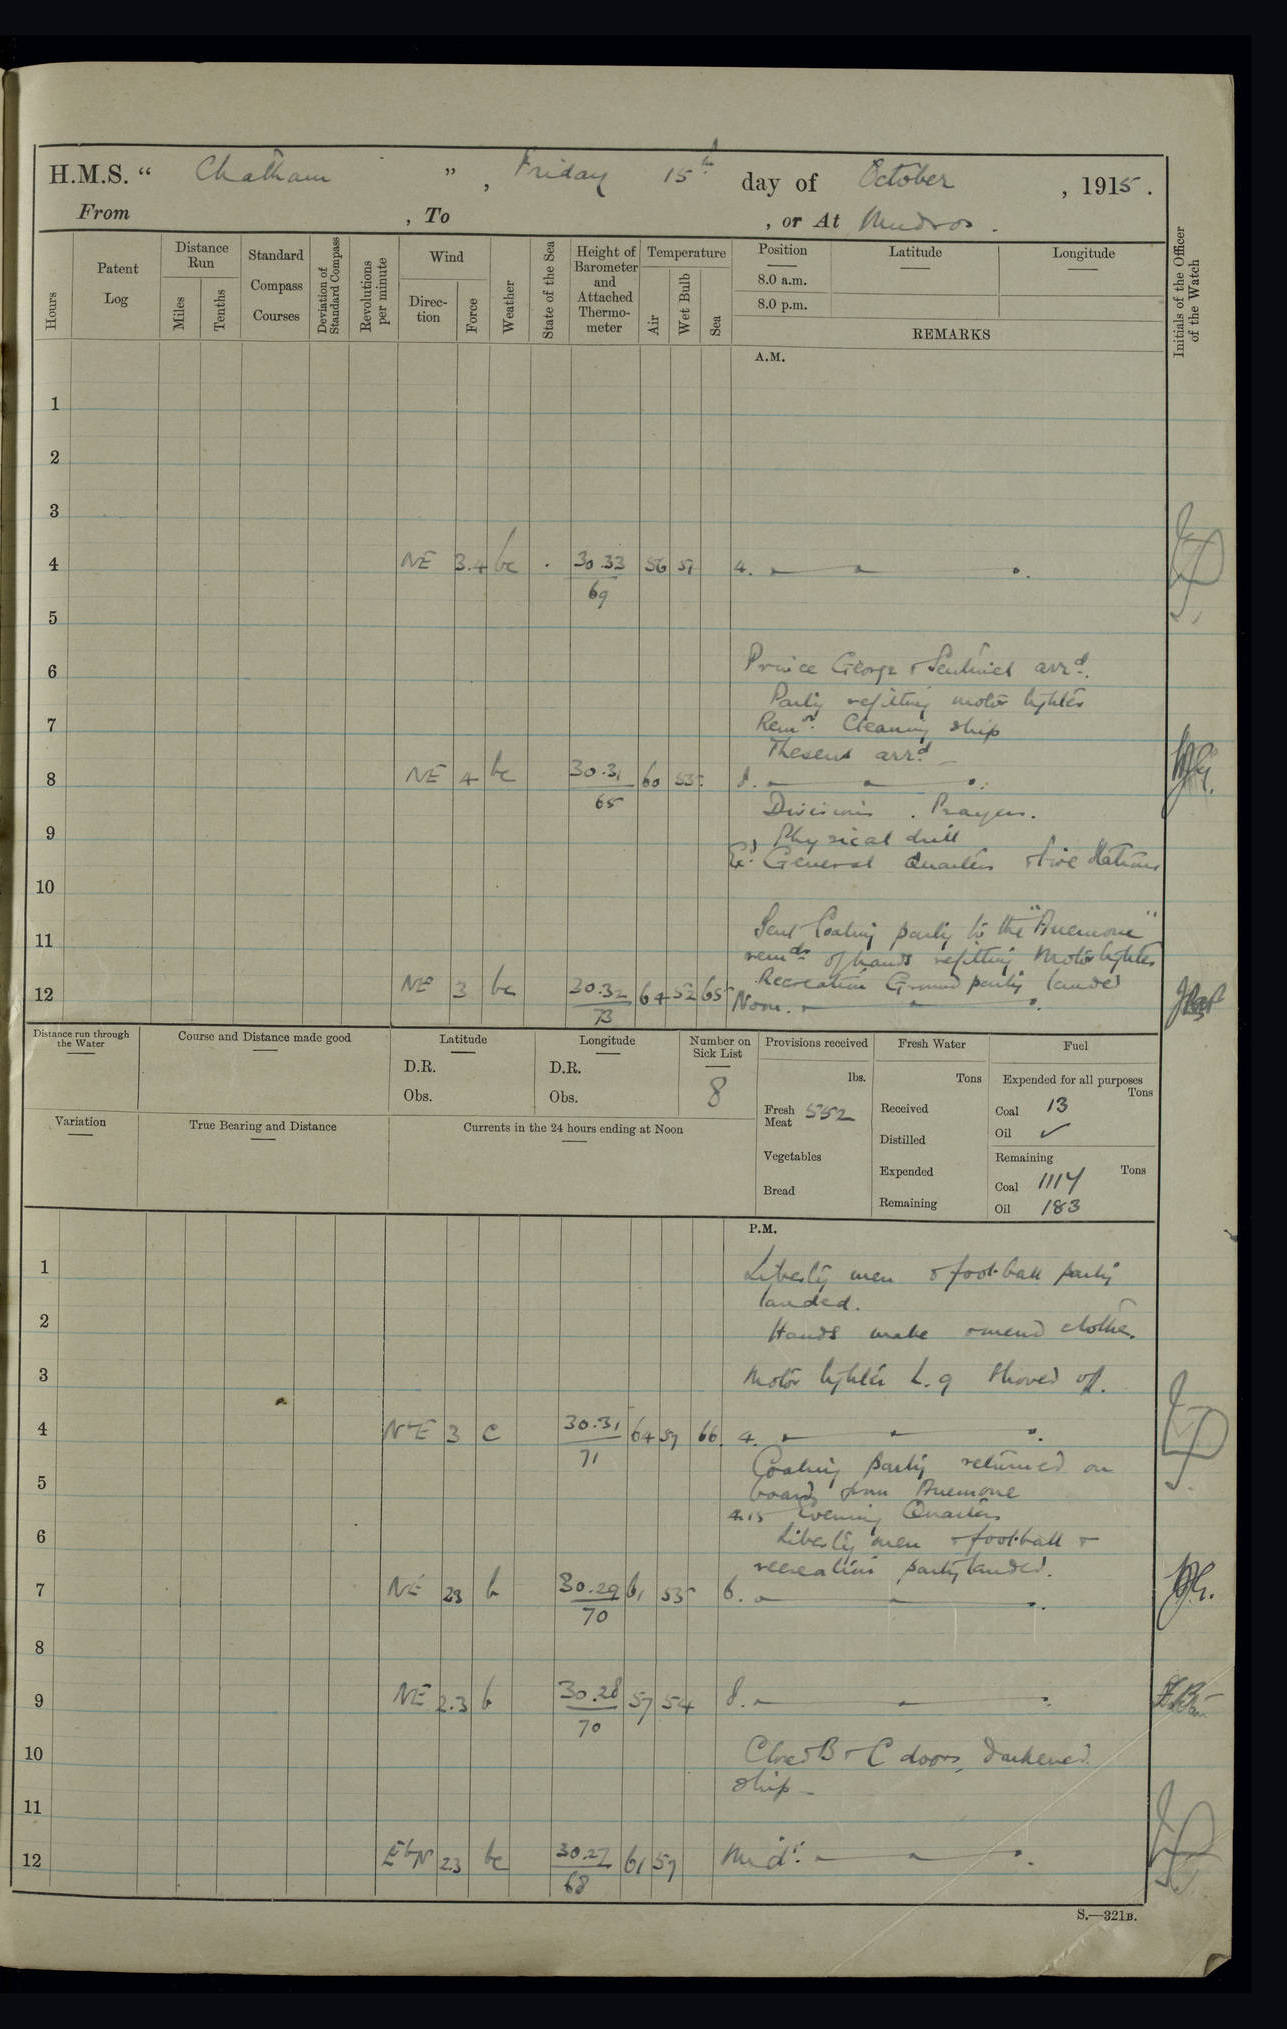 H.M.S. “ Chatham ” , Friday 15th day of October , 1915 .
From , To , or At Mudros .
Hours
Patent Log
Distance Run
Miles
Tenths
Standard Compass Courses
Deviation of Standard Compass
Revolutions per minute
Wind
Direc-tion
Force
Weather
State of the Sea
Height of Barometer and Attached Thermo-meter
Temperature
Air
Wet Bulb
Sea
Position
8.0 a.m.
8.0 p.m.
Latitude
Longitude
REMARKS
Initials of the Officer of the Watch
A.M.
1
2
3
4 NE 3.4 bc 30.33 56 51 4.
69
5
6 Prince George & Sentinel arrd.
Party refitting motor lighter
7 Remr. Cleaning ship
Theseus arrd
8 NE 4 bc 30.31 60 53 8.
65
Divisions . Prayers.
9 Physical drill
Exd General Quarters & Fire Stations
10
11 Sent Coaling party to the "Anemone"
remdr of hands refitting Motor lighter
Recreation Ground party landed
12 NE 3 bc 30.32 64 52 65 Noon.
73
Distance run through the Water
Course and Distance made good
Latitude
D.R.
Obs.
Longitude
D.R.
Obs.
Number on Sick List
8
Provisions received
lbs.
Fresh Meat 552
Vegetables
Bread
Fresh Water
Tons
Received
Distilled
Expended
Remaining
Fuel
Expended for all purposes
Tons
Coal 13
Oil ✓
Remaining
Tons
Coal 1114
Oil 183
Variation
True Bearing and Distance
Currents in the 24 hours ending at Noon
P.M.
1 Liberty men & foot-ball party
landed.
2 Hands make & mend clothes.
3 Motor lighter L.9 shoved off.
4 NE 3 c 30.31 64 57 66 4.
71
Coaling party returned on
5 board from Anemone
4.15 Evening Quarters
6 Liberty men & foot-ball &
recreation party landed.
7 NE 23 b 30.29 61 53 6.
70
8
9 NE 2.3 b 30.28 57 54 8.
70
10 Closed B & C doors, darkened
ship
11
12 EbN 23 bc 30.27 61 57 Midt.
68
S.—321B.